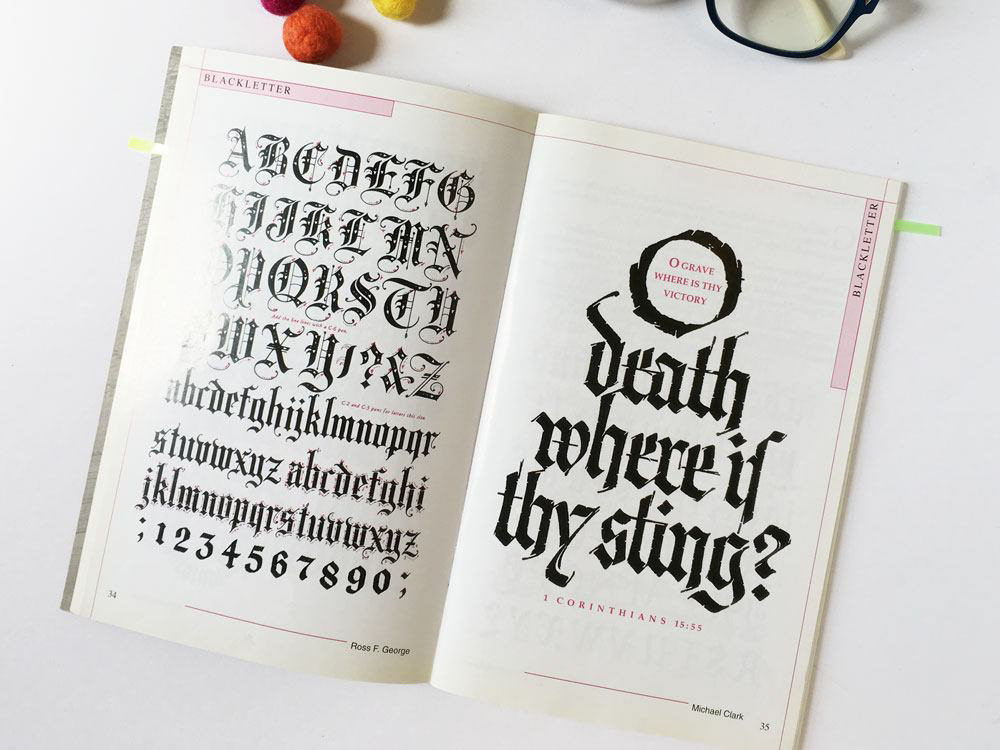 BLACKLETTER
ABCDEFG
HIJKLMN
OPQRSTU
Add the fine lines with a C-6 pen.
WXY!?&Z
C-2 and C-3 pens for letters this size
abcdefghijklmnopqr
stuvwxyz abcdefghi
jklmnopqrstuvwxyz
;1234567890;
34
Ross F. George
BLACKLETTER
O GRAVE
WHERE IS THY
VICTORY
O
death
where is
thy sting?
1 CORINTHIANS 15:55
Michael Clark
35